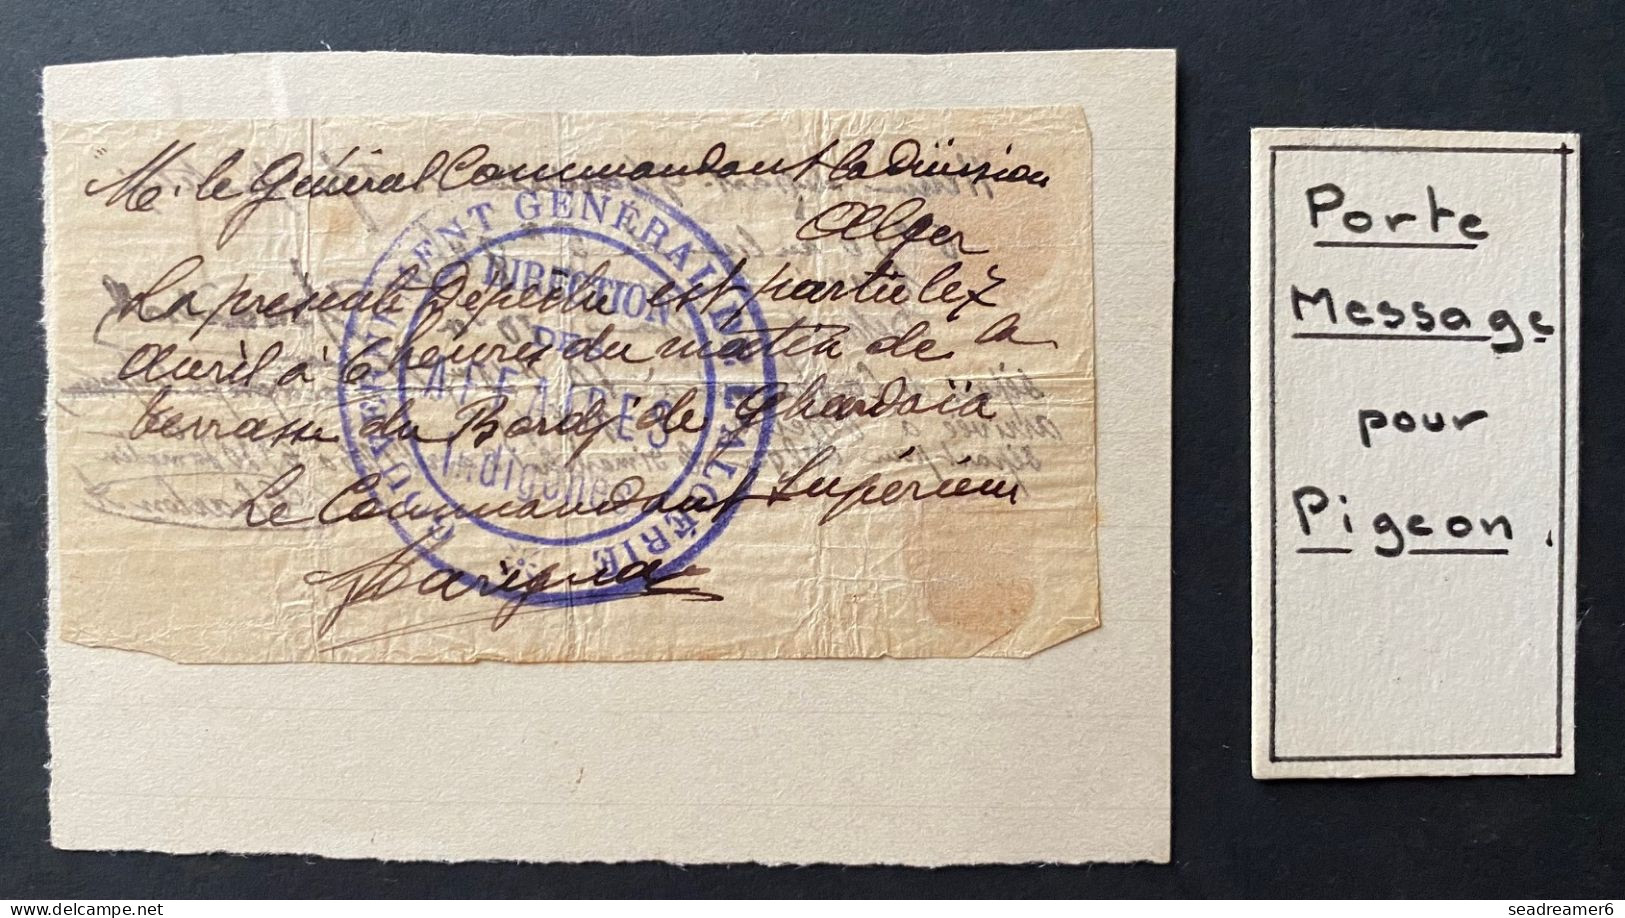 M. le Général Commandant la Division
Alger
La présente Dépêche est partie le 7
Avril à 6 heures du matin de la
terrasse du Bordj de Ghardaïa
Le Commandant Supérieur
GOUVERNEMENT GÉNÉRAL DE L'ALGÉRIE
DIRECTION
DES
AFFAIRES
Indigènes
Porte
Message
pour
Pigeon.
delcampe.net
seadreamer6